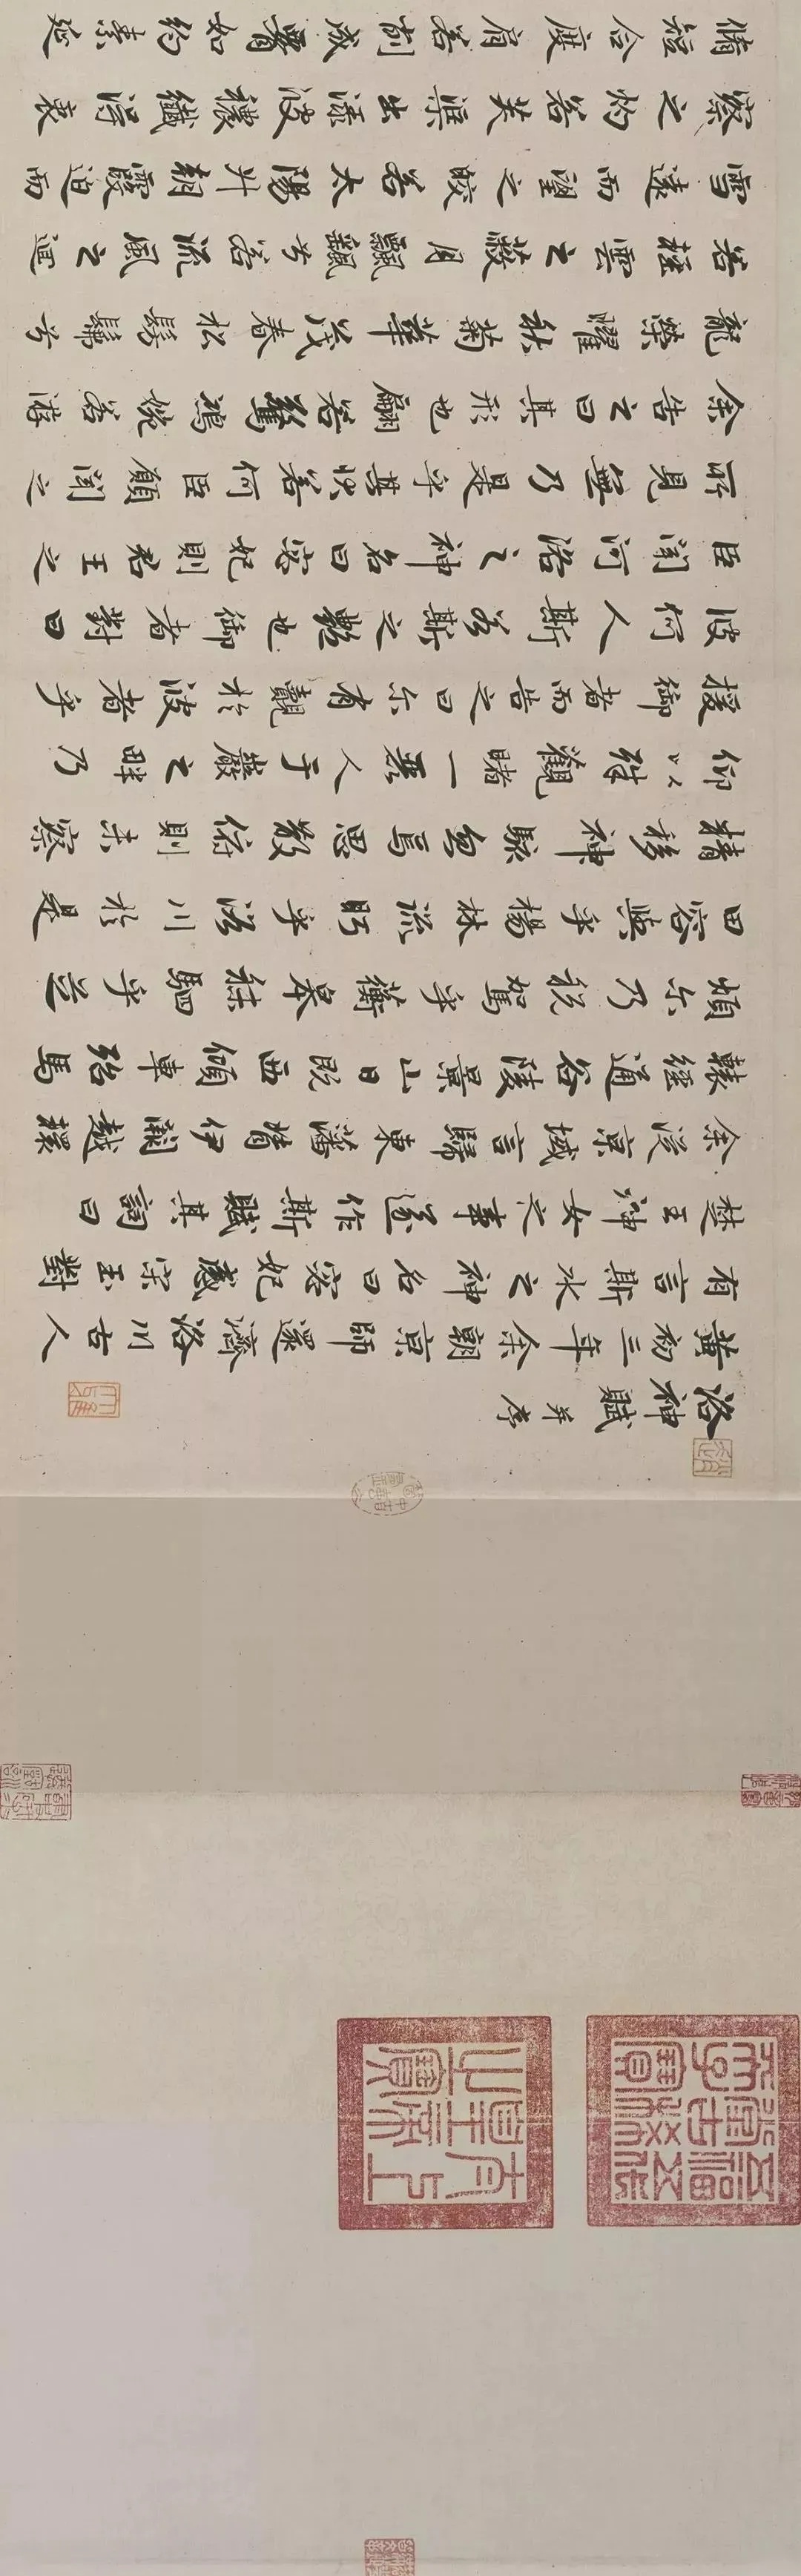 五福五代堂古稀天子寶
太上皇帝之寶
洛神賦 并序
黃初三年余朝京師還濟洛川古人
有言斯水之神名曰宓妃感宋玉對
楚王神女之事遂作斯賦其詞曰
余從京域言歸東藩背伊闕越轘
轅經通谷陵景山日既西傾車殆馬
煩尒乃稅駕乎蘅皋秣駟乎芝
田容與乎楊林流眄乎洛川於是
精移神駭忽焉思散俯則未察
仰以殊觀睹一麗人于巖之畔乃
援御者而告之曰尒有覿於彼者乎
彼何人斯若斯之豔也御者對曰
臣聞河洛之神名曰宓妃則君王之
所見無乃是乎其狀若何臣願聞之
余告之曰其形也翩若驚鴻婉若游
龍榮曜秋菊華茂春松髣髴兮
若輕雲之蔽月飄飄兮若流風之迴
雪遠而望之皎若太陽升朝霞迫而
察之灼若芙蕖出淥波穠纖得衷
脩短合度肩若削成腰如約素延